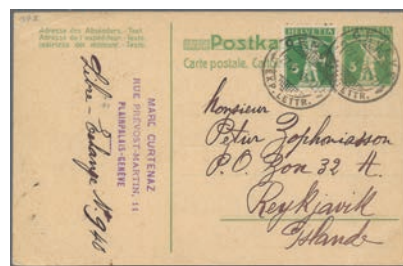 Adresse des Absenders. - Text
Adresse de l'expéditeur. - Texte
Indirizzo del mittente. - Testo
Postka
Carte postale.
EXP. LETTR.
EXP. LETTR.
MARC CURTENAZ
RUE PRÉVOST-MARTIN, 11
PLAINPALAIS-GENÈVE
Libre-Echange No 940
Monsieur
Pétur Zophoniasson
P.O. Box 32 A.
Reykjavik
Islande